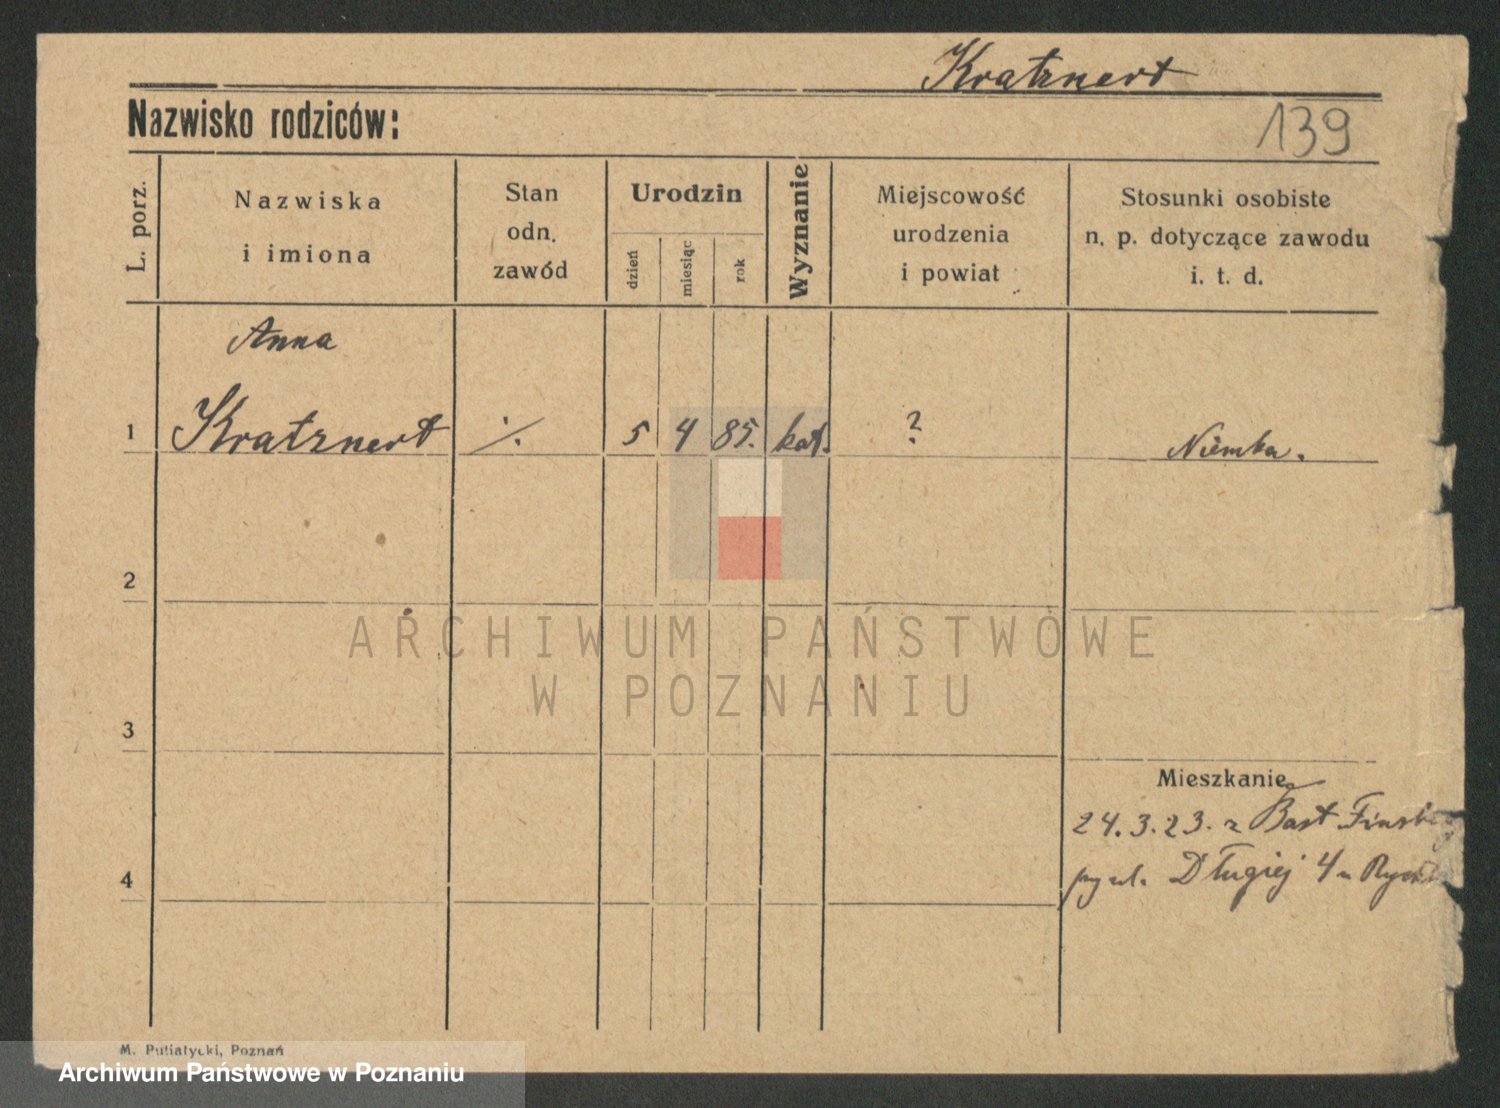 Kratznert
Nazwisko rodziców:
139
L. porz.
Nazwiska
i imiona
Stan
odn.
zawód
Urodzin
dzień
miesiąc
rok
Wyznanie
Miejscowość
urodzenia
i powiat
Stosunki osobiste
n. p. dotyczące zawodu
i. t. d.
Anna
1 Kratznert ·/. 5 4 85. kat. ? Niemka.
2
ARCHIWUM PAŃSTWOWE
W POZNANIU
3
Mieszkanie
24.3.23. z
4
ul. Długiej 4
M. Putiatycki, Poznań
Archiwum Państwowe w Poznaniu